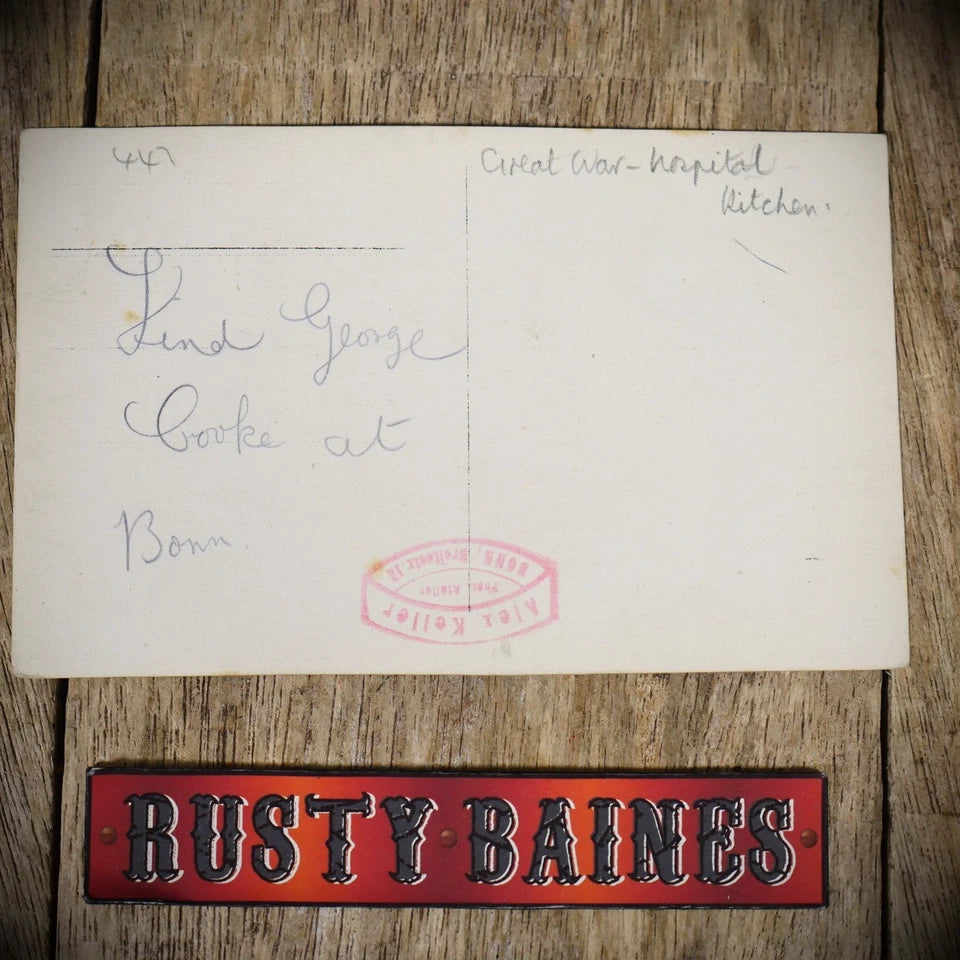 447
Great War - hospital
Kitchen.
Find George
Cooke at
Bonn.
Alex Keller
Phot. Atelier
BONN, Breitestr. 12
RUSTY BAINES